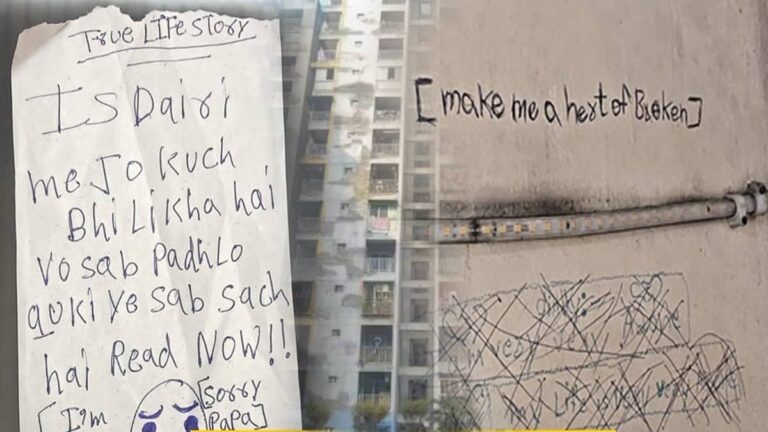 True LIFe story
Is Dairi
me Jo kuch
Bhi Likha hai
vo sab Padhlo
quki ye sab sach
hai Read NOW!!
[sorry
[I'm
Papa]
[make me a hert of Broken]